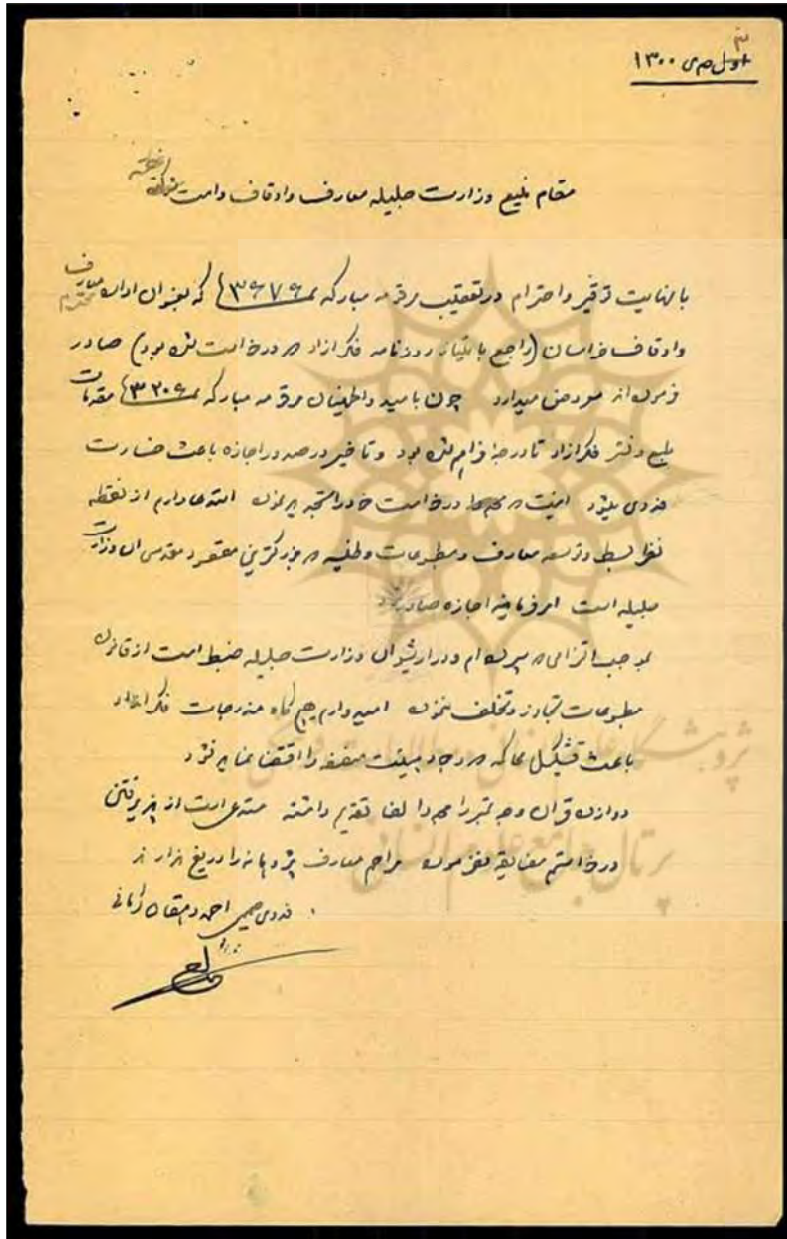 ۳
اول جدی ۱۳۰۰
مقام منیع وزارت جلیله معارف و اوقاف دامت شوکته
با نهایت توقیر و احترام در تعقیب مرقومه مبارکه که بعنوان اداره معارف محترم
و اوقاف خراسان (راجع بامتیاز روزنامه فکر آزاد که درخواست شده بود) صادر
فرموده‌اند معروض میدارد چون بامید و اطمینان مرقومه مبارکه مقدمات
طبع و نشر فکر آزاد تا درجهٔ فراهم شده بود و تاخیر در صدور اجازه باعث خسارت
فدوی میشود اینست که مجددا درخواست خود را تجدید نموده استدعا دارم از نقطه
نظر بسط و توسعه معارف و مطبوعات وطنیه که بزرگترین مقصود مقدس آن وزارت
جلیله است امر فرمایند اجازه صادر شود
بموجب التزامی که سپرده‌ام و در آرشیو آن وزارت جلیله ضبط است از قانون
مطبوعات تجاوز و تخلف ننموده امیدوارم هیچگاه مندرجات فکر آزاد
باعث تشکیل محاکمه که وجود هیئت منصفه را اقتضا نماید نشود
دوازده قران وجه تمبر را مجددا لفا تقدیم داشته مستدعی است از پذیرفتن
درخواستم مضایقه نفرموده مراحم معارف پژوهانه را دریغ ندارند
فدوی صمیمی احمد دهقان کرمانی
پژوهشگاه علوم انسانی و مطالعات فرهنگی
پرتال جامع علوم انسانی